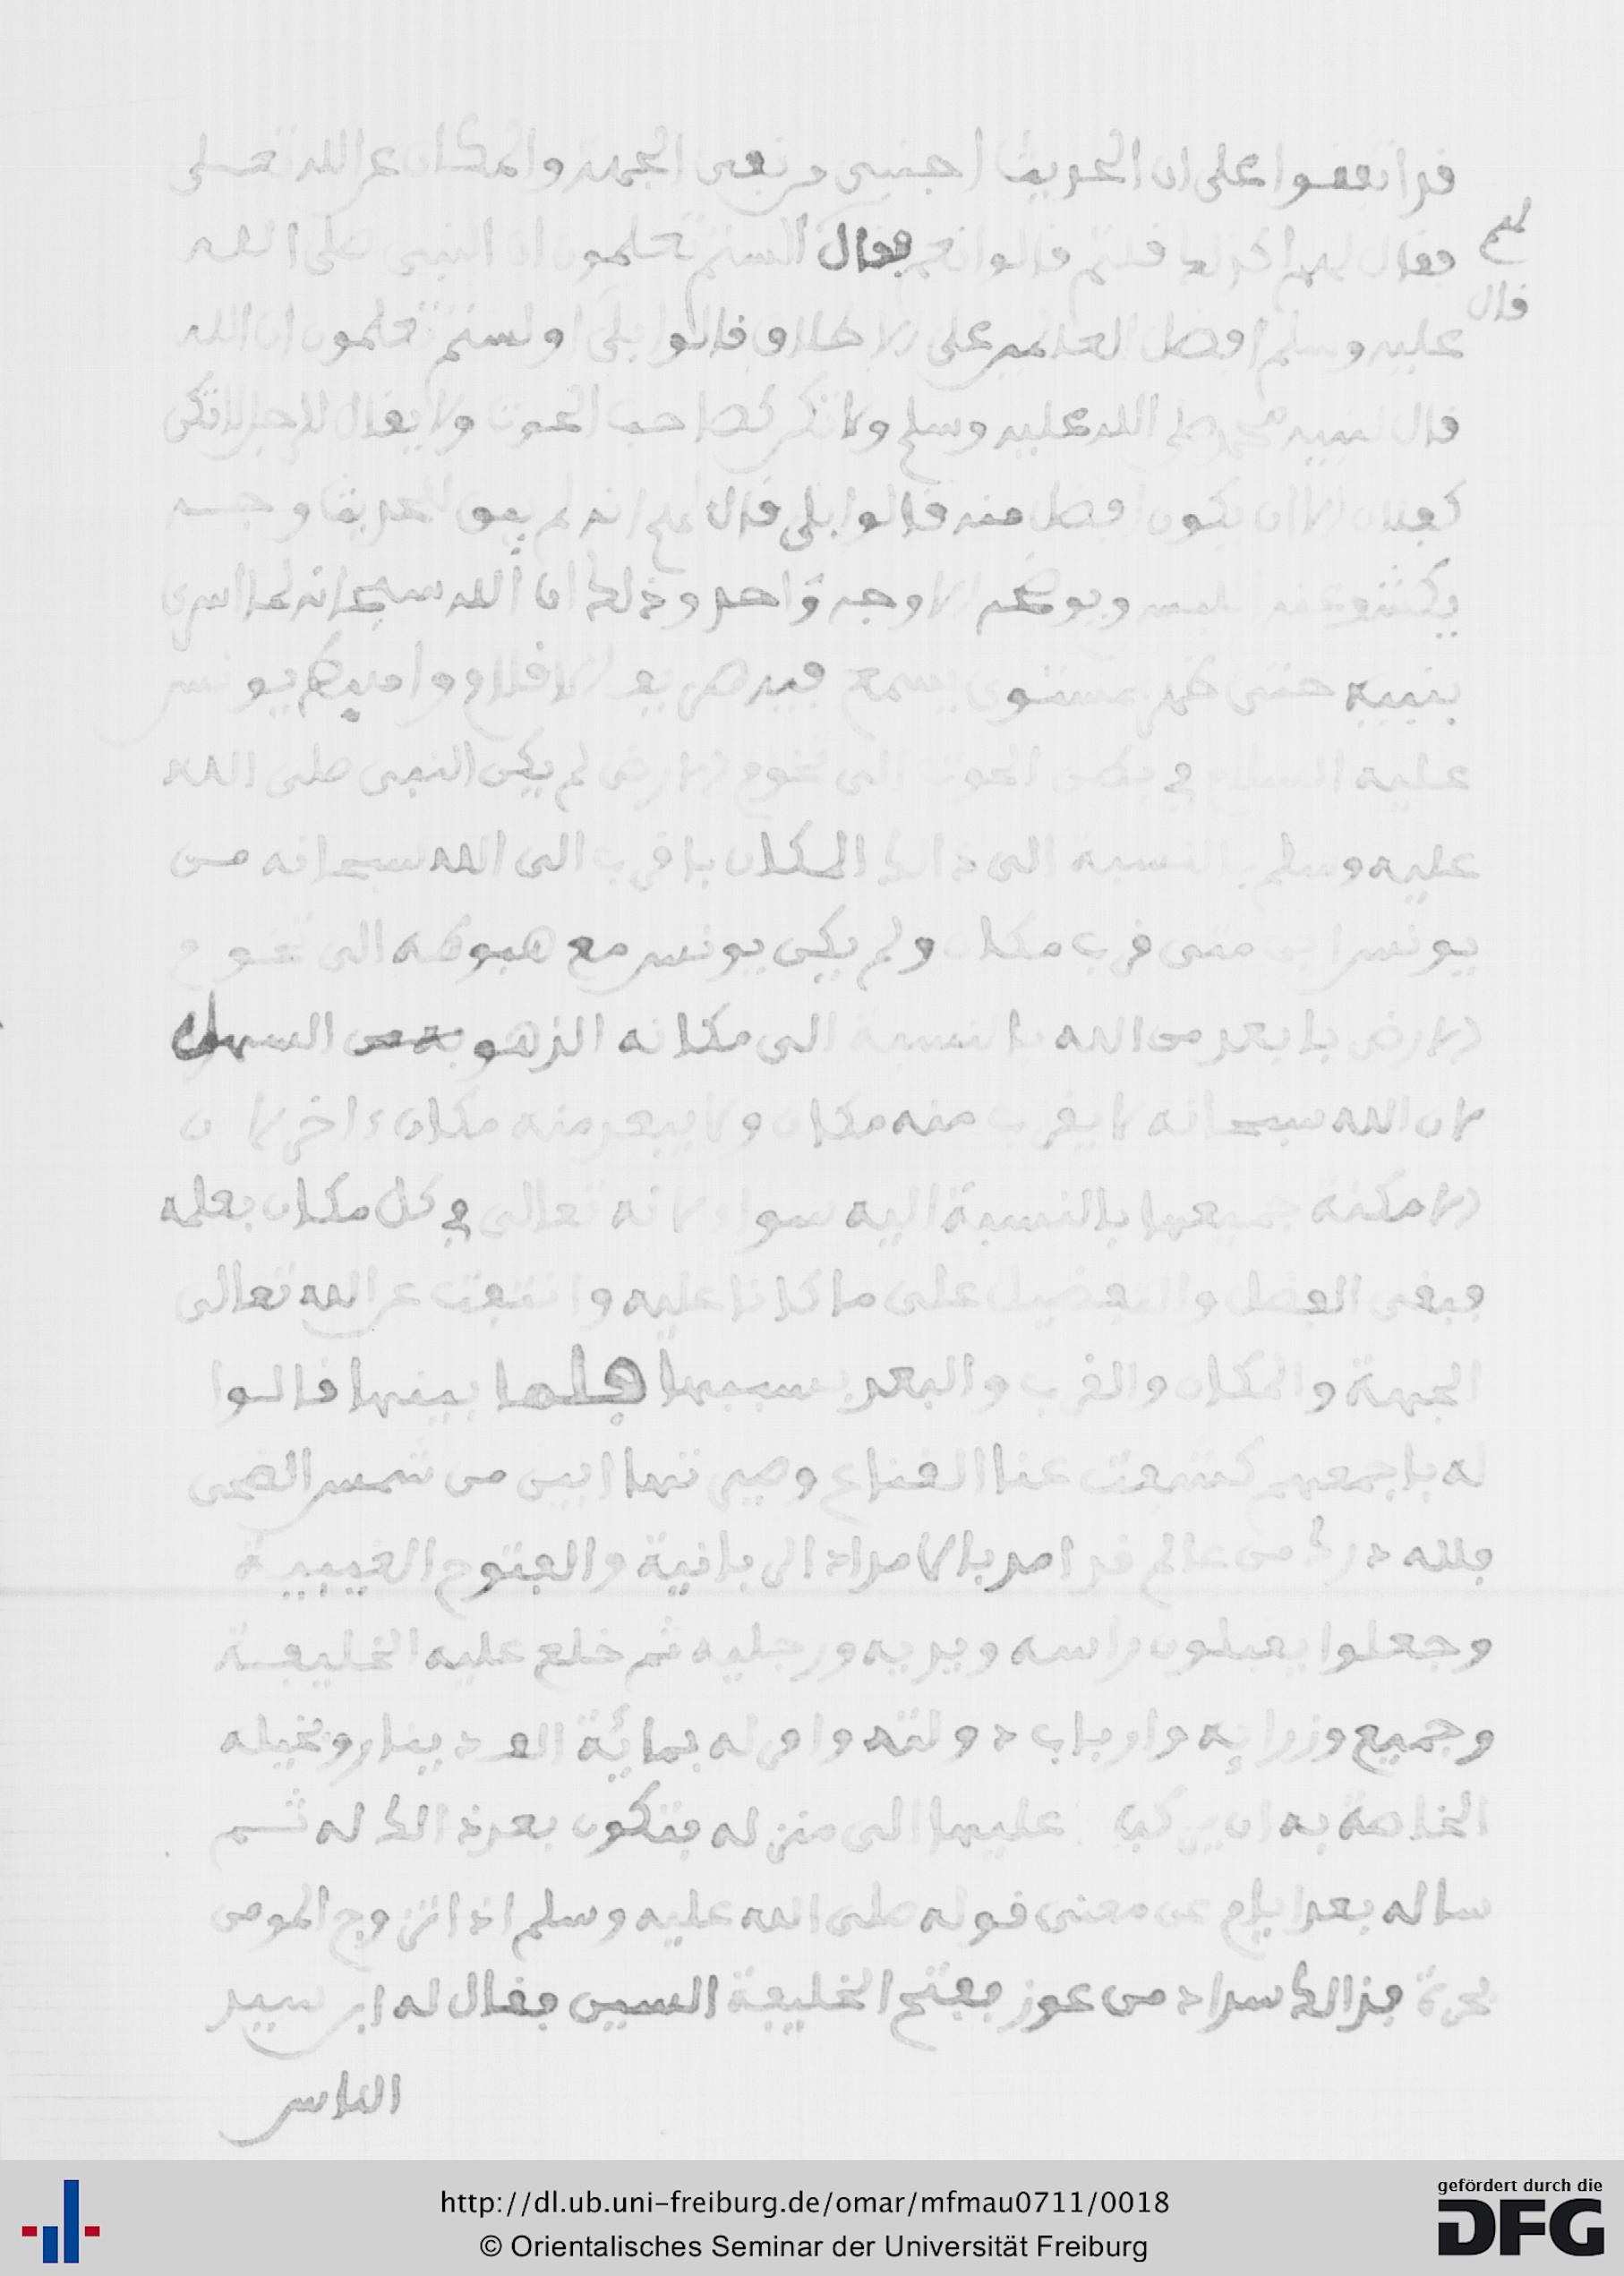 قد اتفقوا على ان الحديث اجنبي من نفي الجهة والمكان عن الله تعلى
فقال لهم اكذلك قلتم قالوا نعم فقال الستم تعلمون ان النبي صلى الله
لهم
قال
عليه وسلم افضل العلمين على الاطلاق قالوا بلى اولستم تعلمون ان الله
قال لنبيه محمد صلى الله عليه وسلم ولا تكن كصاحب الحوت ولا يقال للرجل لا تكن
كفلان الا ان يكون افضل منه قالوا بلى قال لهم انه لم يبق للحديث وجه
يكشف عنه اللبس ويوضحه الا وجه واحد وذلك ان الله سبحانه لما اسرى
بنبيه حتى ظهر بمستوى يسمع فيه صريف الاقلام واهبط يونس
عليه السلام في بطن الحوت الى تخوم الارض لم يكن النبي صلى الله
عليه وسلم بالنسبة الى ذالك المكان باقرب الى الله سبحانه من
يونس ابن متى قرب مكان ولم يكن يونس مع هبوطه الى تخوم
الارض بابعد من الله بالنسبة الى مكانه الذي هو السهل
لان الله سبحانه لا يقرب منه مكان ولا يبعد منه مكان ءاخر لان
الامكنة جميعها بالنسبة اليه سواء لانه تعالى في كل مكان بعلمه
فبقى الفضل والتفضيل على ما كانا عليه وانتفت عن الله تعالى
الجهة والمكان والقرب والبعد بسببها فلما بينها قالوا
له باجمعهم كشفت عنا القناع وصيرتها ابين من شمس الضحى
فلله درك من عالم قد امد بالامداد الربانية والفتوح الغيبية
وجعلوا يقبلون راسه ويديه ورجليه ثم خلع عليه الخليفة
وجميع وزرايه وارباب دولته وامر له بمائة الف دينار وبخيله
الخاصة به ان يركب عليها الى منزله فتكون بعد ذالك له ثم
ساله بعد ايام عن معنى قوله صلى الله عليه وسلم اذا تزوج المومن
بحرة فذالك سداد من عوز ففتح الخليفة السين فقال له ابن سيد
الناس
http://dl.ub.uni-freiburg.de/omar/mfmau0711/0018
© Orientalisches Seminar der Universität Freiburg
gefördert durch die
DFG